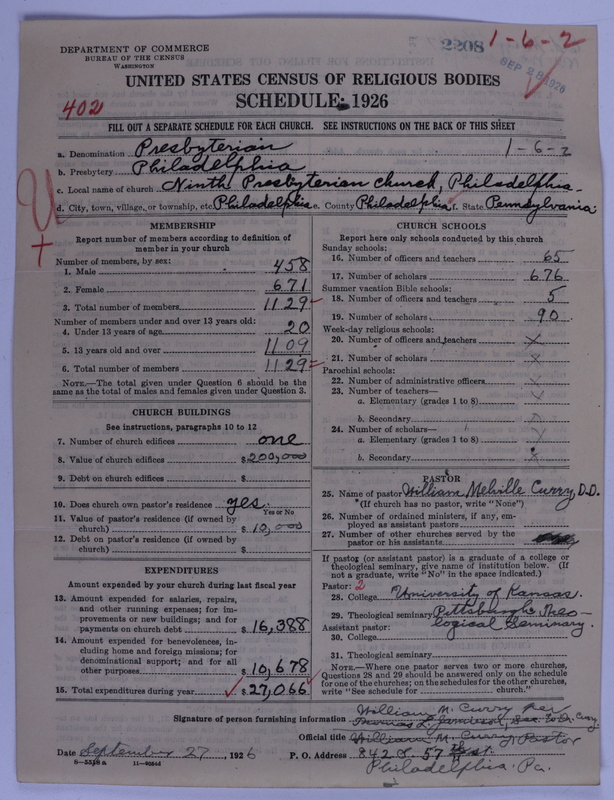 DEPARTMENT OF COMMERCE
BUREAU OF THE CENSUS
WASHINGTON
2208
1-6-2
SEP 28 1926
UNITED STATES CENSUS OF RELIGIOUS BODIES
402
SCHEDULE: 1926
FILL OUT A SEPARATE SCHEDULE FOR EACH CHURCH. SEE INSTRUCTIONS ON THE BACK OF THIS SHEET
a. Denomination Presbyterian 1-6-2
b. Presbytery Philadelphia
c. Local name of church Ninth Presbyterian Church, Philadelphia-
d. City, town, village, or township, etc. Philadelphia e. County Philadelphia f. State Pennsylvania
MEMBERSHIP
Report number of members according to definition of
member in your church
Number of members, by sex:
1. Male 458
2. Female 671
3. Total number of members 1129
Number of members under and over 13 years old:
4. Under 13 years of age 20
5. 13 years old and over 1109
6. Total number of members 1129
NOTE.—The total given under Question 6 should be the
same as the total of males and females given under Question 3.
CHURCH BUILDINGS
See instructions, paragraphs 10 to 12
7. Number of church edifices one
8. Value of church edifices $200,000
9. Debt on church edifices $
10. Does church own pastor's residence yes.
Yes or No
11. Value of pastor's residence (if owned by
church) $10,000
12. Debt on pastor's residence (if owned by
church) $
EXPENDITURES
Amount expended by your church during last fiscal year
13. Amount expended for salaries, repairs,
and other running expenses; for im-
provements or new buildings; and for
payments on church debt $16,388
14. Amount expended for benevolences, in-
cluding home and foreign missions; for
denominational support; and for all
other purposes $10,678
15. Total expenditures during year $27,066
CHURCH SCHOOLS
Report here only schools conducted by this church
Sunday schools:
16. Number of officers and teachers 65
17. Number of scholars 676
Summer vacation Bible schools:
18. Number of officers and teachers 5
19. Number of scholars 90
Week-day religious schools:
20. Number of officers and teachers X
21. Number of scholars X
Parochial schools:
22. Number of administrative officers X
23. Number of teachers—
a. Elementary (grades 1 to 8) X
b. Secondary X
24. Number of scholars—
a. Elementary (grades 1 to 8) X
b. Secondary X
PASTOR
25. Name of pastor William Melville Curry D.D.
(If church has no pastor, write "None")
26. Number of ordained ministers, if any, em-
ployed as assistant pastors
27. Number of other churches served by the
pastor or his assistants
If pastor (or assistant pastor) is a graduate of a college or
theological seminary, give name of institution below. (If
not a graduate, write "No" in the space indicated.)
Pastor: 2
28. College University of Kansas.
29. Theological seminary Pittsburgh Theo-
logical Seminary.
Assistant pastor:
30. College
31. Theological seminary
NOTE.—Where one pastor serves two or more churches,
Questions 28 and 29 should be answered only on the schedule
for one of the churches; on the schedules for the other churches,
write "See schedule for church."
William M. Curry per
Signature of person furnishing information
Official title William M. Curry Pastor
Date September 27, 1926 P. O. Address 842 S. 57 th St.
8-5518a 11-9054d
Philadelphia. Pa.